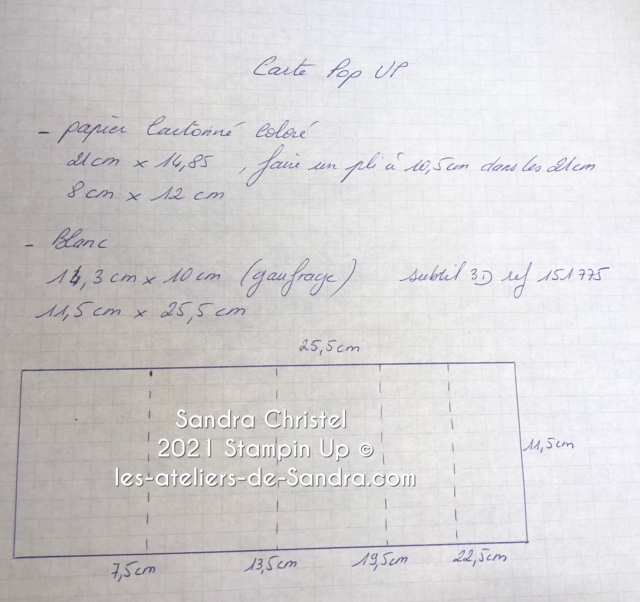 Carte Pop UP
- papier Cartonné Coloré
21cm x 14,85 , faire un pli à 10,5cm dans les 21cm
8cm x 12 cm
- Blanc
14,3 cm x 10 cm (gaufrage) subtil 3D ref 151775
11,5 cm x 25,5 cm
25,5cm
Sandra Christel
2021 Stampin Up ©
les-ateliers-de-Sandra.com
11,5cm
7,5cm 13,5cm 19,5cm 22,5cm